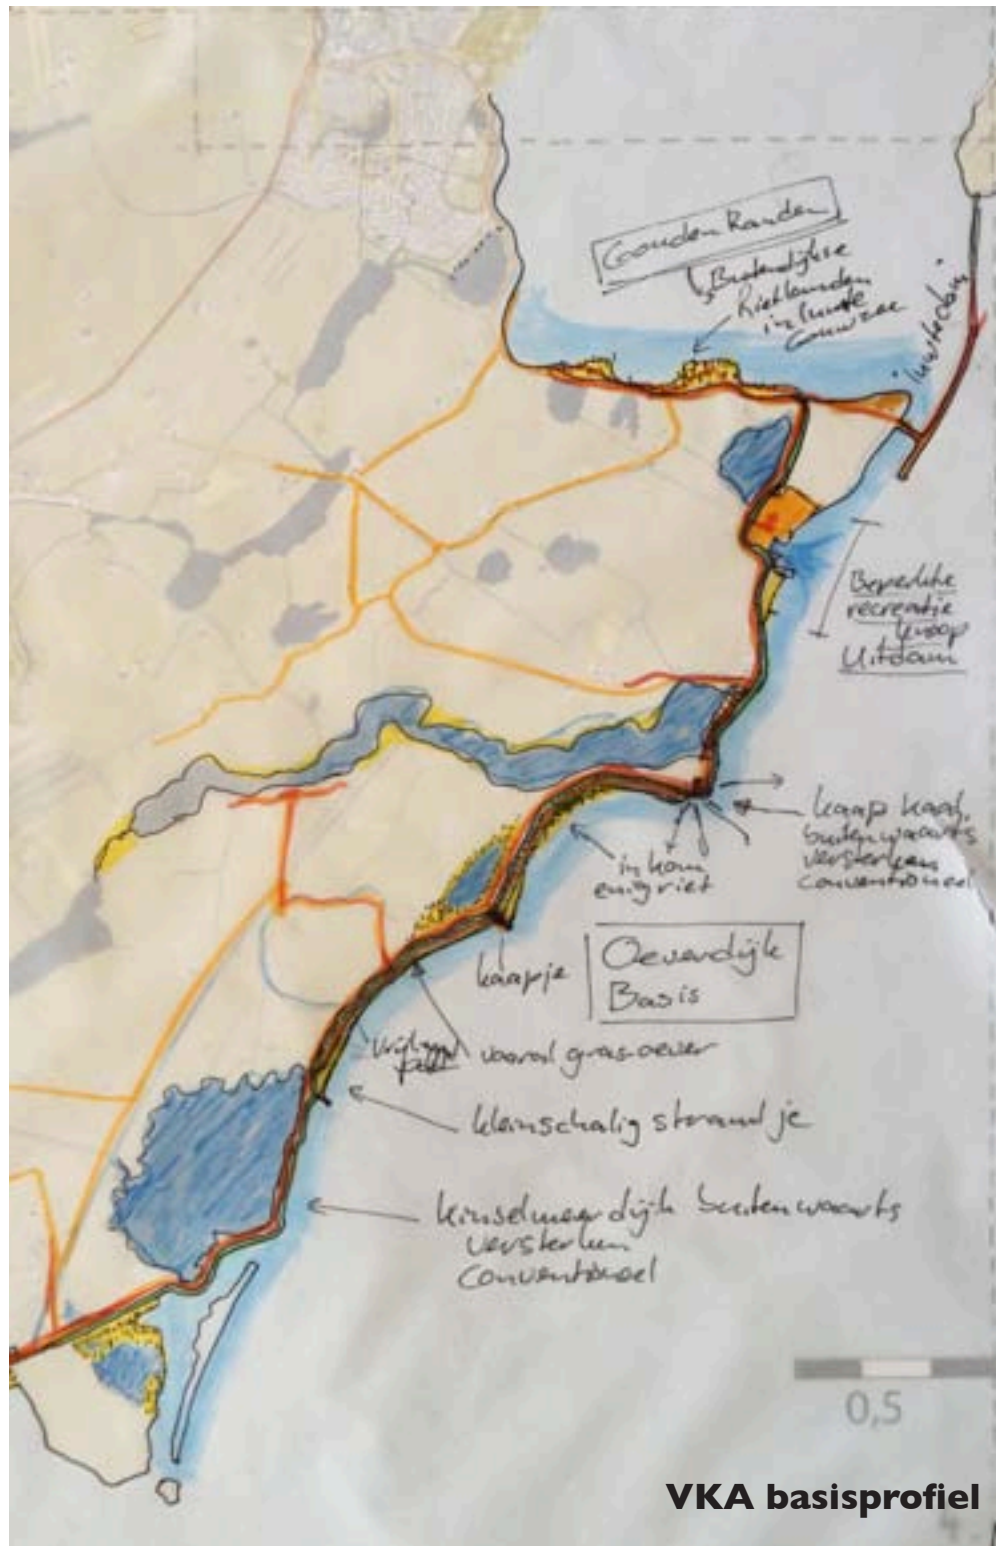 Gouden Randen
Buitendijkse
Rietlanden
in luwte
Gouwzee
"Luwtedam"
Beperkte
recreatie
knoop
Uitdam
kaap kaal,
buitenwaarts
versterken
conventioneel
in kom
enig riet
kaapje
Oeverdijk
Basis
vooral grasoever
kleinschalig strandje
kinselmeerdijk buitenwaarts
versterken
conventioneel
0,5
VKA basisprofiel